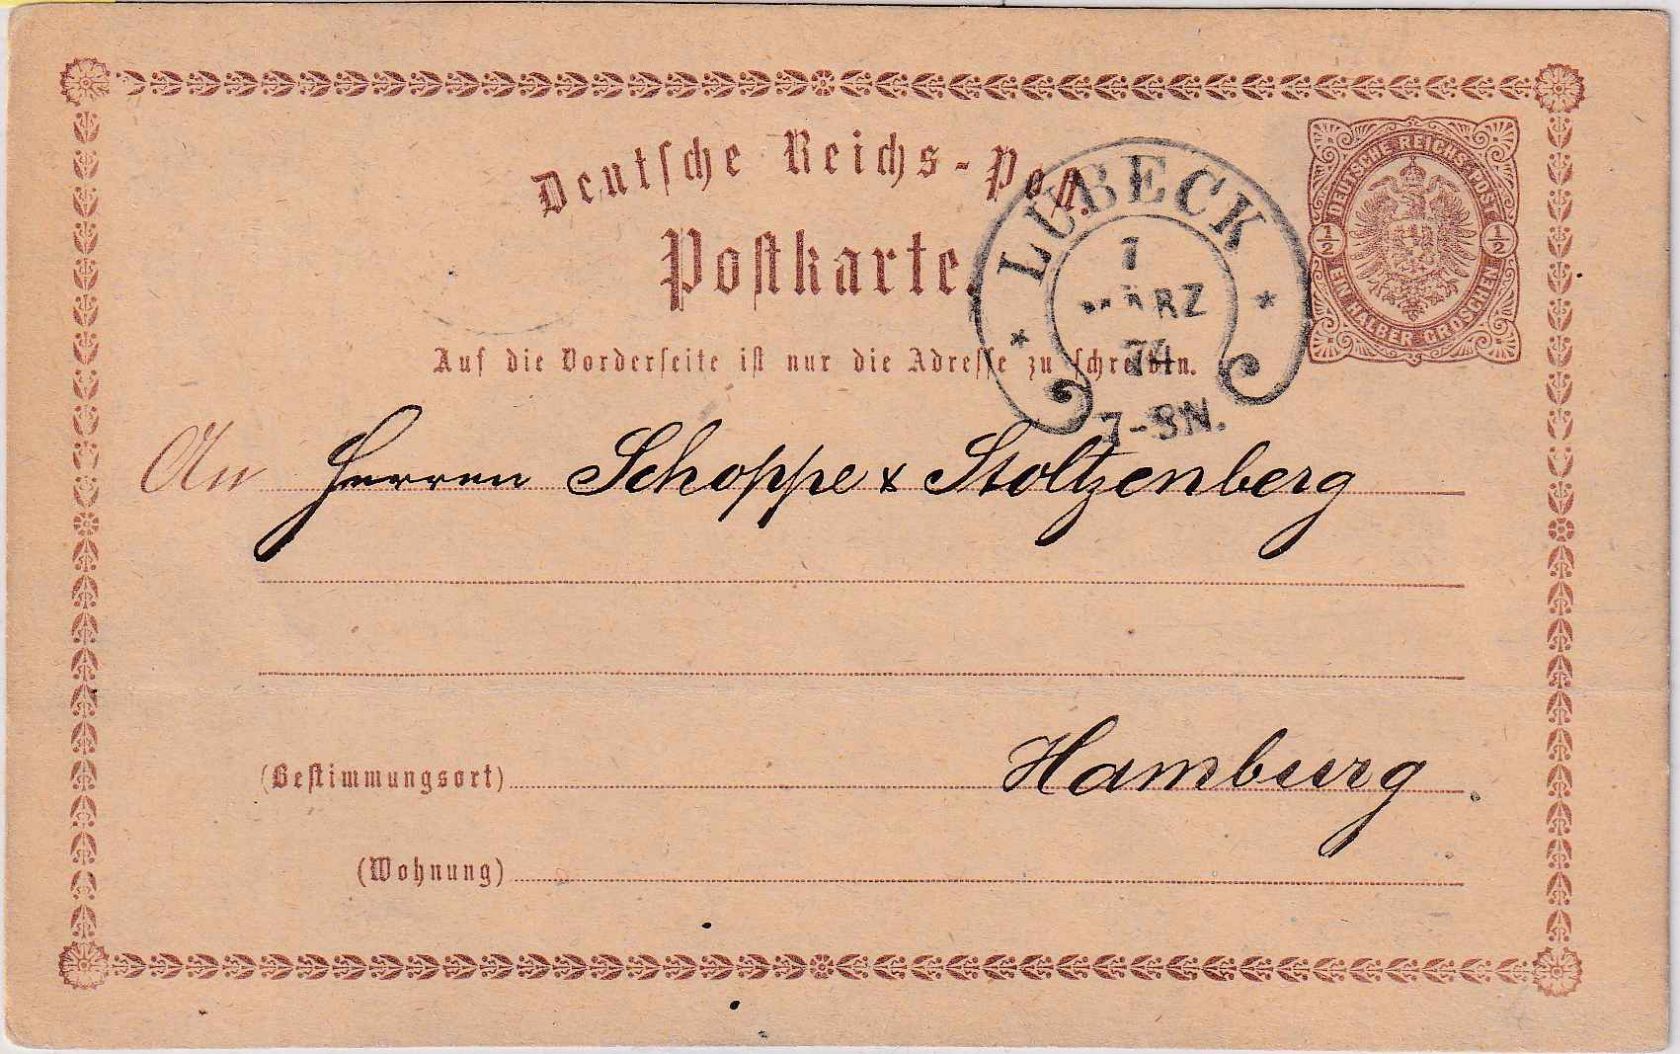 Deutsche Reichs-Post.
Postkarte.
LÜBECK
7
MÄRZ
74
7-8N.
DEUTSCHE REICHS-POST
1/2
1/2
EIN HALBER GROSCHEN
Auf die Vorderseite ist nur die Adresse zu schreiben.
An Herren Schoppe & Stoltzenberg
(Bestimmungsort) Hamburg
(Wohnung)